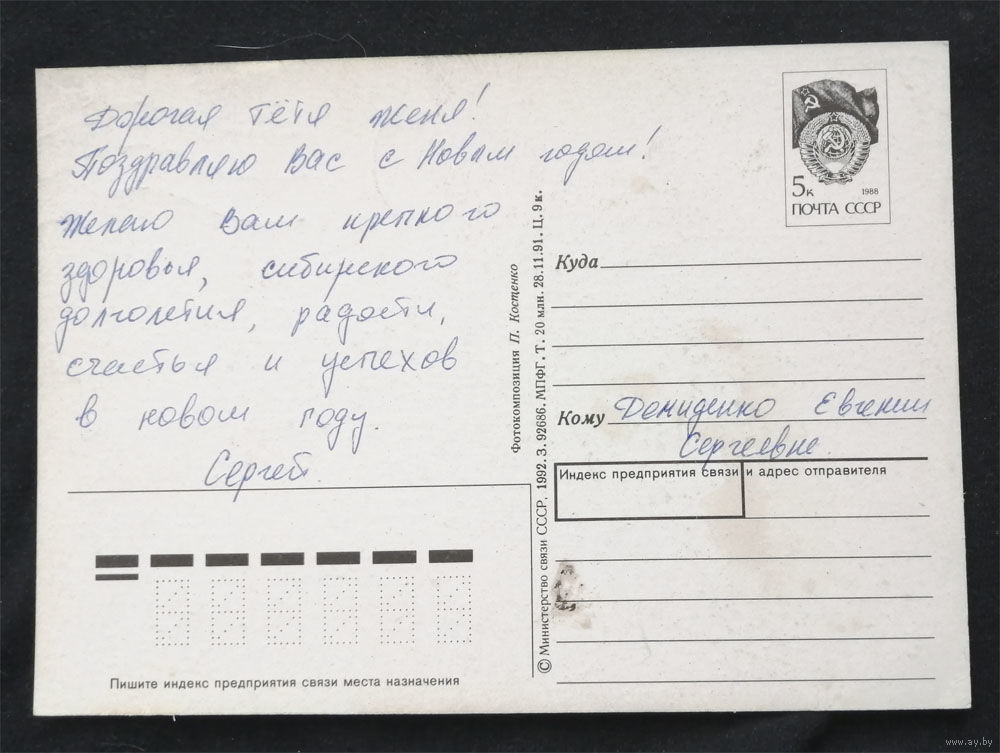 Дорогая тётя Женя!
Поздравляю Вас с Новым годом!
Желаю Вам крепкого
здоровья, сибирского
долголетия, радости,
счастья и успехов
в новом году.
Сергей.
Пишите индекс предприятия связи места назначения
Фотокомпозиция П. Костенко
© Министерство связи СССР. 1992. З. 92686. МПФГ. Т. 20 млн. 28.11.91. Ц. 9 к.
5к 1988
ПОЧТА СССР
Куда
Кому Демиденко Евгении
Сергеевне.
Индекс предприятия связи и адрес отправителя
www.ay.by